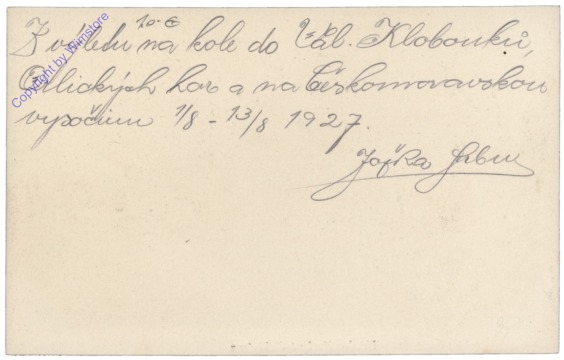 20.-€
Z výletu na kole do Val. Klobouků,
Orlických hor a na Českomoravskou
vysočinu 1/8 - 13/8 1927.
Jožka
Copyright by Wimstore